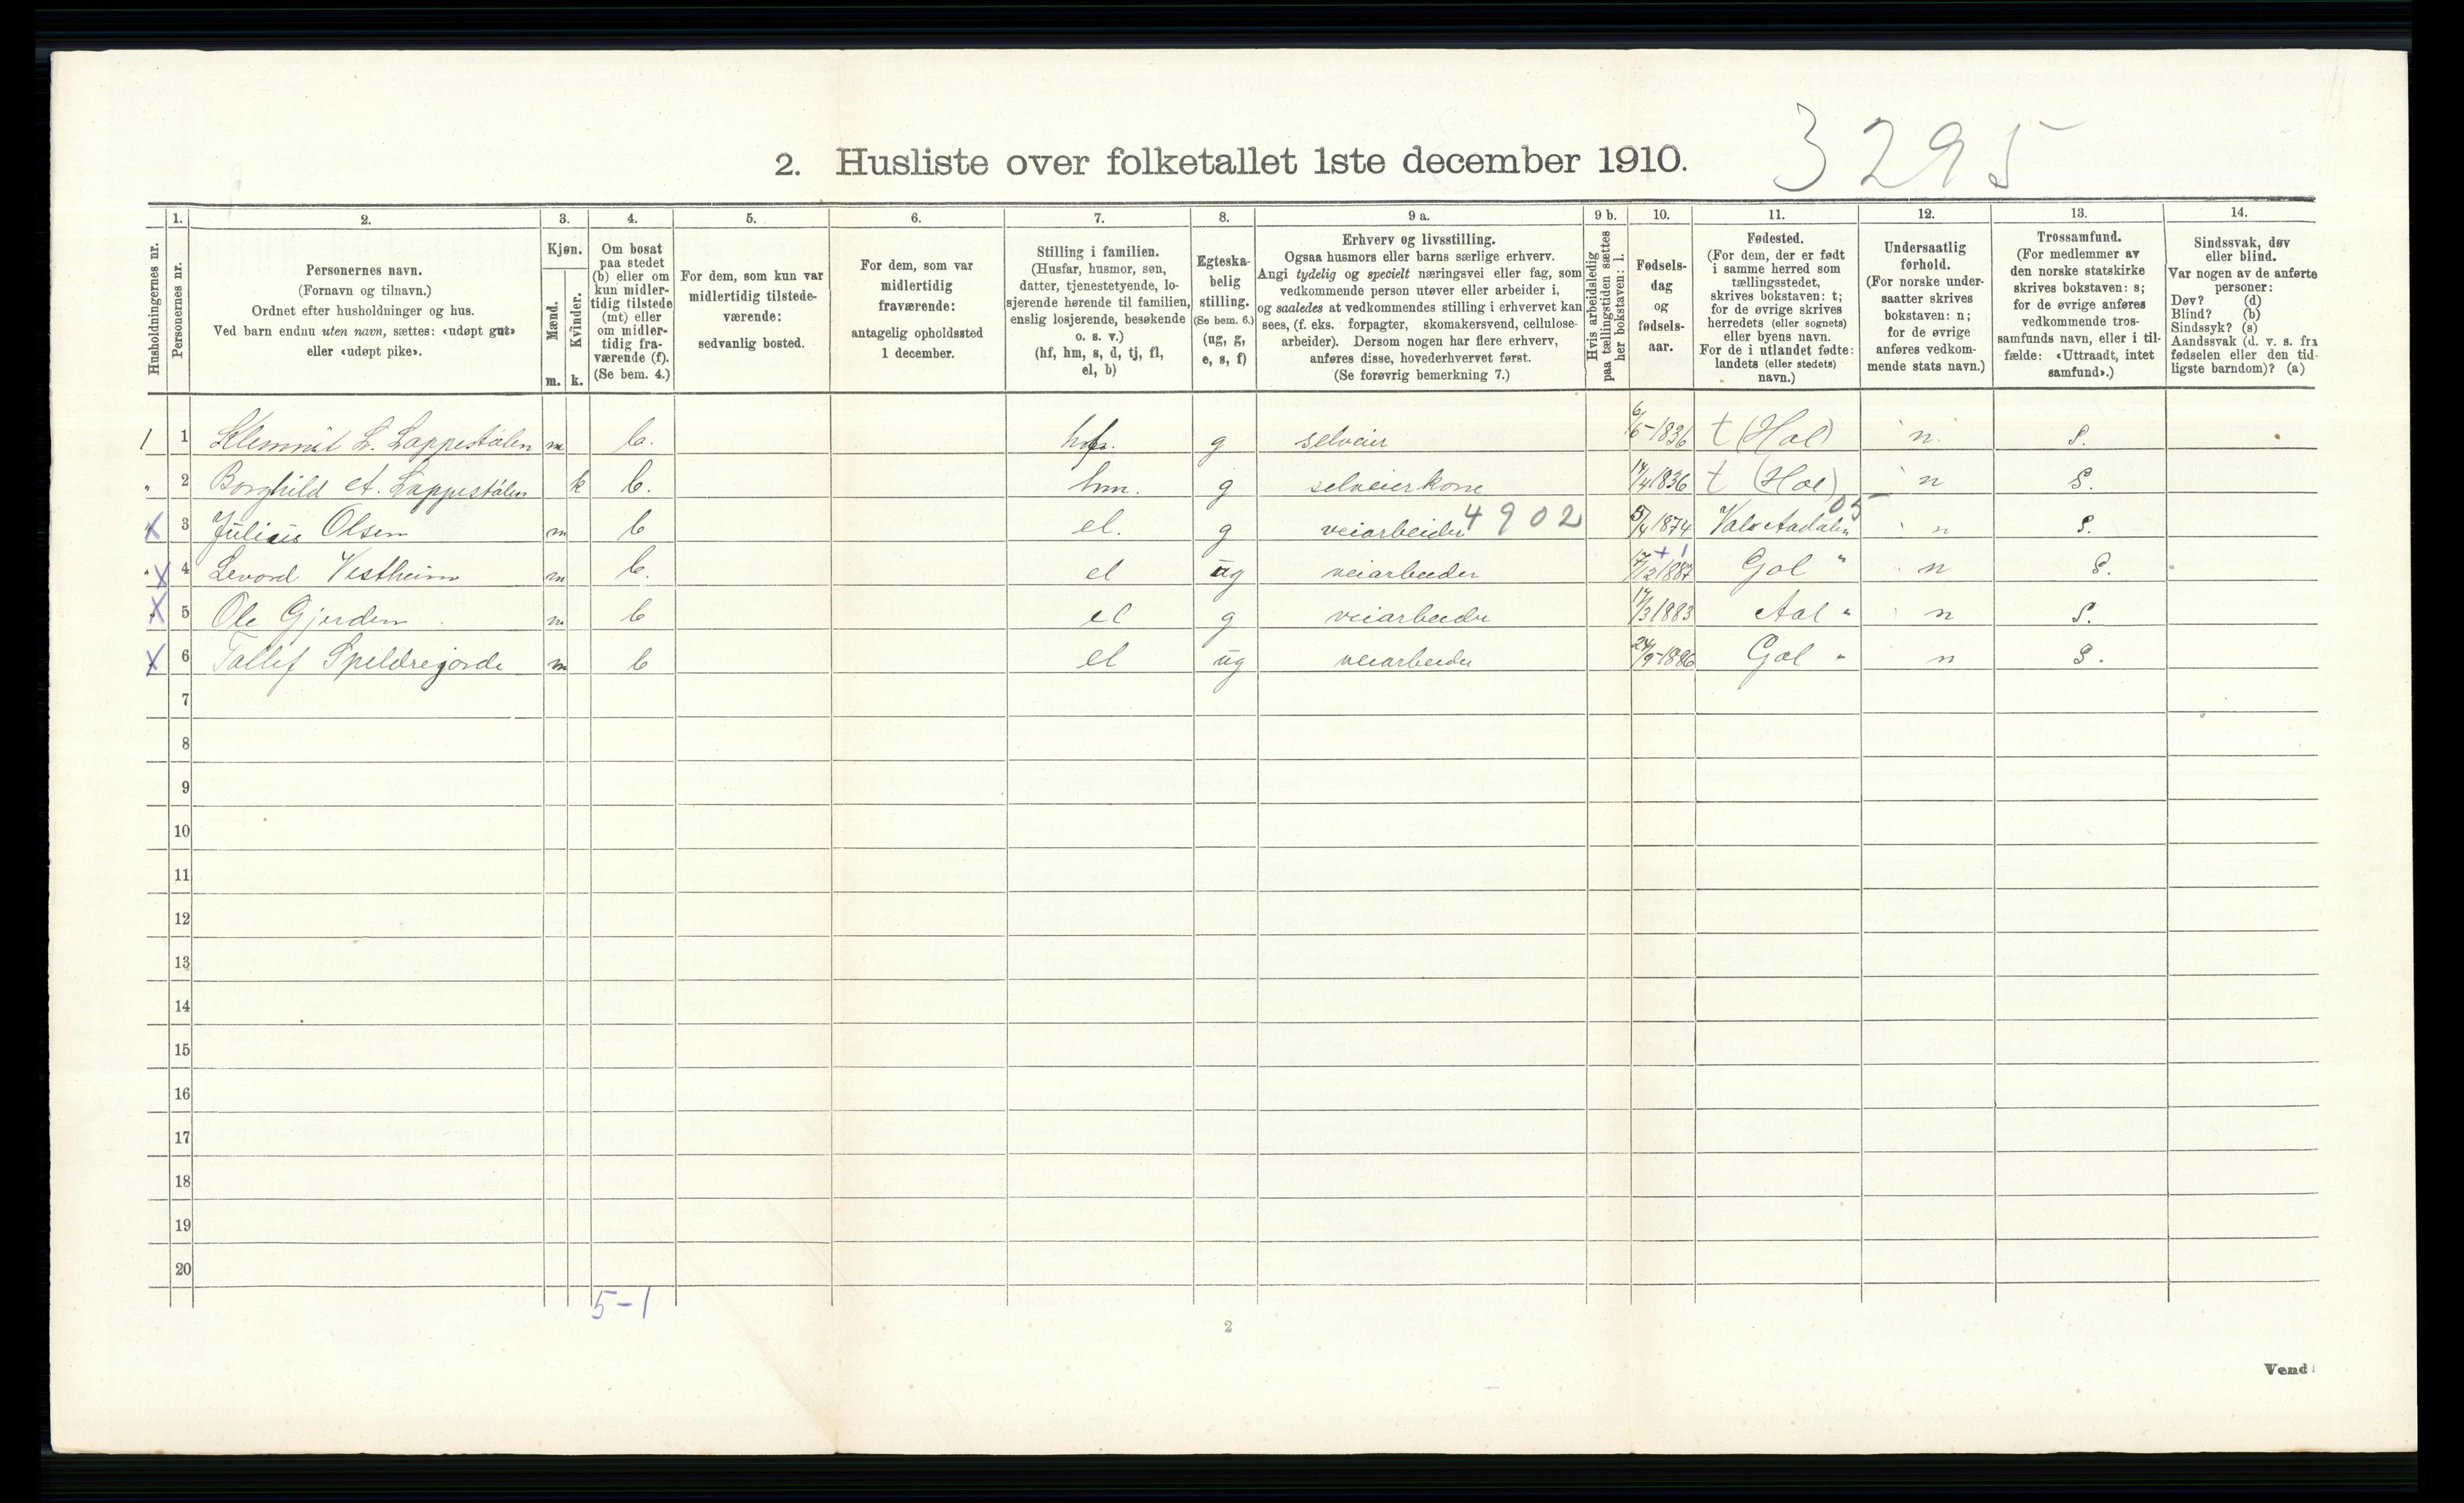 3295
2. Husliste over folketallet 1ste december 1910.
Husholdningernes nr.
1.
Personernes nr.
2.
Personernes navn.
(Fornavn og tilnavn.)
Ordnet efter husholdninger og hus.
Ved barn endnu uten navn, sættes: «udøpt gut»
eller «udøpt pike».
3.
Kjøn.
Mænd.
Kvinder.
m. k.
4.
Om bosat
paa stedet
(b) eller om
kun midler-
tidig tilstede
(mt) eller
om midler-
tidig fra-
værende (f).
(Se bem. 4.)
5.
For dem, som kun var
midlertidig tilstede-
værende:
sedvanlig bosted.
6.
For dem, som var
midlertidig
fraværende:
antagelig opholdssted
1 december.
7.
Stilling i familien.
(Husfar, husmor, søn,
datter, tjenestetyende, lo-
sjerende hørende til familien,
enslig losjerende, besøkende
o. s. v.)
(hf, hm, s, d, tj, fl,
el, b)
8.
Egteska-
belig
stilling.
(Se bem. 6.)
(ug, g,
e, s, f)
9 a.
Erhverv og livsstilling.
Ogsaa husmors eller barns særlige erhverv.
Angi tydelig og specielt næringsvei eller fag, som
vedkommende person utøver eller arbeider i,
og saaledes at vedkommendes stilling i erhvervet kan
sees, (f. eks. forpagter, skomakersvend, cellulose-
arbeider). Dersom nogen har flere erhverv,
anføres disse, hovederhvervet først.
(Se forøvrig bemerkning 7.)
9 b.
Hvis arbeidsledig
paa tællingstiden sættes
her bokstaven: l.
10.
Fødsels-
dag
og
fødsels-
aar.
11.
Fødested.
(For dem, der er født
i samme herred som
tællingsstedet,
skrives bokstaven: t;
for de øvrige skrives
herredets (eller sognets)
eller byens navn.
For de i utlandet fødte:
landets (eller stedets)
navn.)
12.
Undersaatlig
forhold.
(For norske under-
saatter skrives
bokstaven: n;
for de øvrige
anføres vedkom-
mende stats navn.)
13.
Trossamfund.
(For medlemmer av
den norske statskirke
skrives bokstaven: s;
for de øvrige anføres
vedkommende tros-
samfunds navn, eller i til-
fælde: «Uttraadt, intet
samfund».)
14.
Sindssvak, døv
eller blind.
Var nogen av de anførte
personer:
Døv? (d)
Blind? (b)
Sindssyk? (s)
Aandssvak (d. v. s. fra
fødselen eller den tid-
ligste barndom)? (a)
1 1 L. Lappestølen m b. g selveier 1836 t (Hol) n. s.
" 2 Borghild A. Lappestølen k b. hm. g selveierkone 14/4 1836 t (Hol) n s.
X 3 Julius Olsen m b el. g veiarbeider 4902 5/4 1874 05 n s.
X 4 Levord Vestheim m b. el ug veiarbeider 17/12 1887 + 1 Gol " n s.
X 5 Ole Gjerden m b el g veiarbeider 17/3 1883 Aal " n s.
X 6 Tollef Speldregjorde m b el ug veiarbeider 24/9-1886 Gol " n s.
7
8
9
10
11
12
13
14
15
16
17
18
19
20
5-1
2
Vend